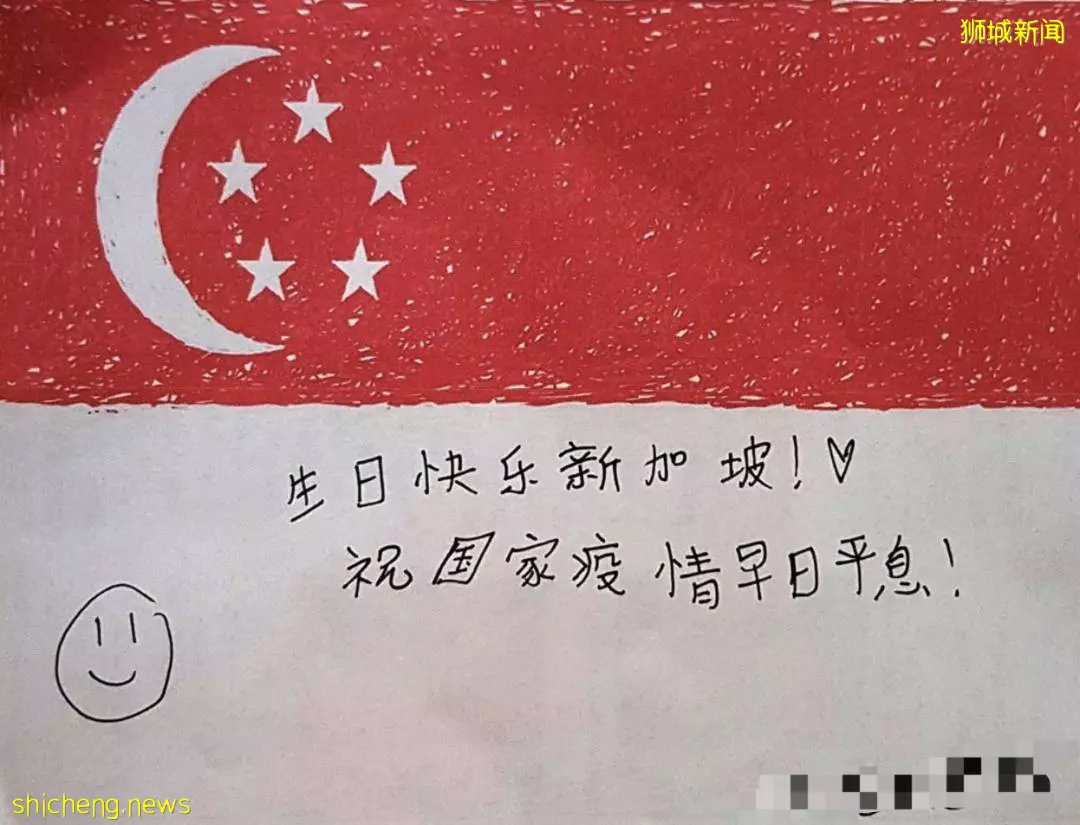 狮城新闻
生日快乐新加坡！♡
祝国家疫情早日平息！
shicheng.news